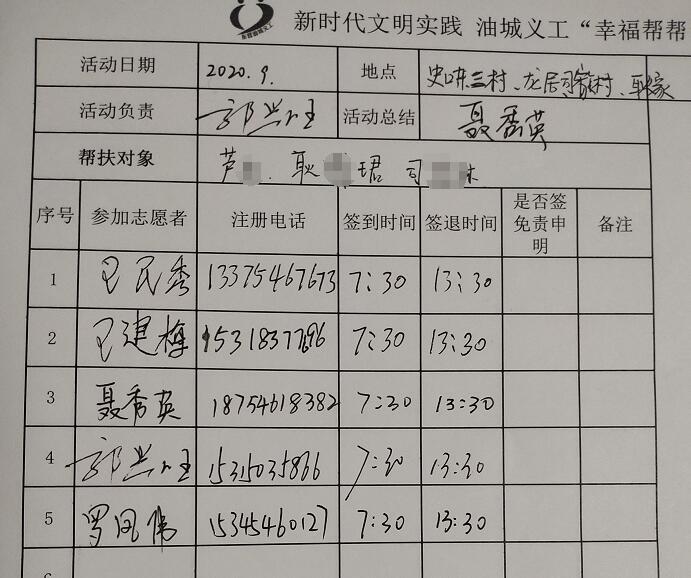 新时代文明实践 油城义工 “幸福帮帮
活动日期 2020.9. 地点 史口镇三村、龙居司家村、耿家
活动负责 郭兴旺 活动总结 聂秀英
帮扶对象 芦 、耿 珺 司
序号 参加志愿者 注册电话 签到时间 签退时间 是否签免责申明 备注
1 王民秀 13375467673 7:30 13:30
2 王建梅 7:30 13:30
3 聂秀英 18754618382 7:30 13:30
4 郭兴旺 15315035866 7:30 13:30
5 罗凤伟 15345460127 7:30 13:30